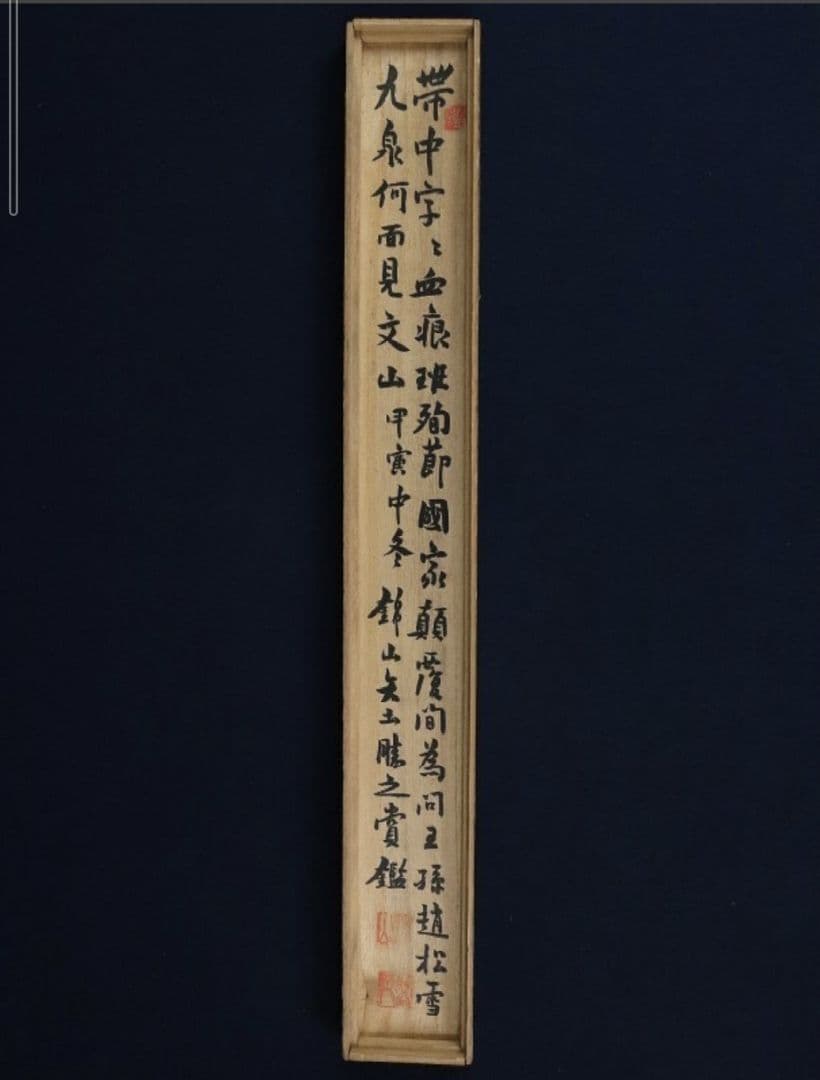 帶中字〻血痕班殉節國家顛覆間為問王孫趙松雪
九泉何面見文山 甲寅中冬 錦山矢土勝之賞鑑